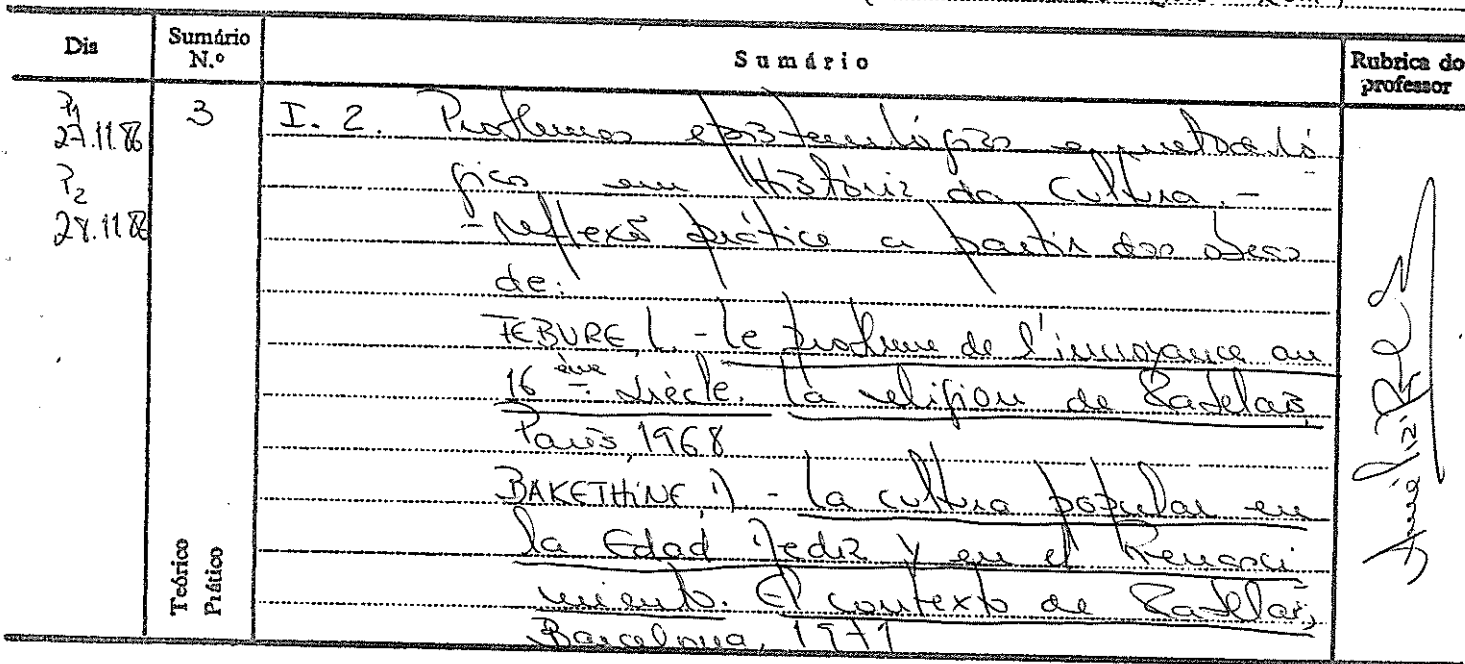 Dia
Sumário N.º
Sumário
Rubrica do professor
P1
27.11.86
P2
28.11.86
3
Teórico
Prático
I. 2. Problemas epistemológicos e metodoló
gicos em História da Cultura. -
- Reflexão prática a partir das obras
de:
FEBVRE, L. - Le problème de l'incroyance au
16 ème siècle. La religion de Rabelais,
Paris, 1968
BAKETHINE, M. - La cultura popular en
la Edad Media y en el Renaci
miento. El contexto de Rabelais,
Barcelona, 1971